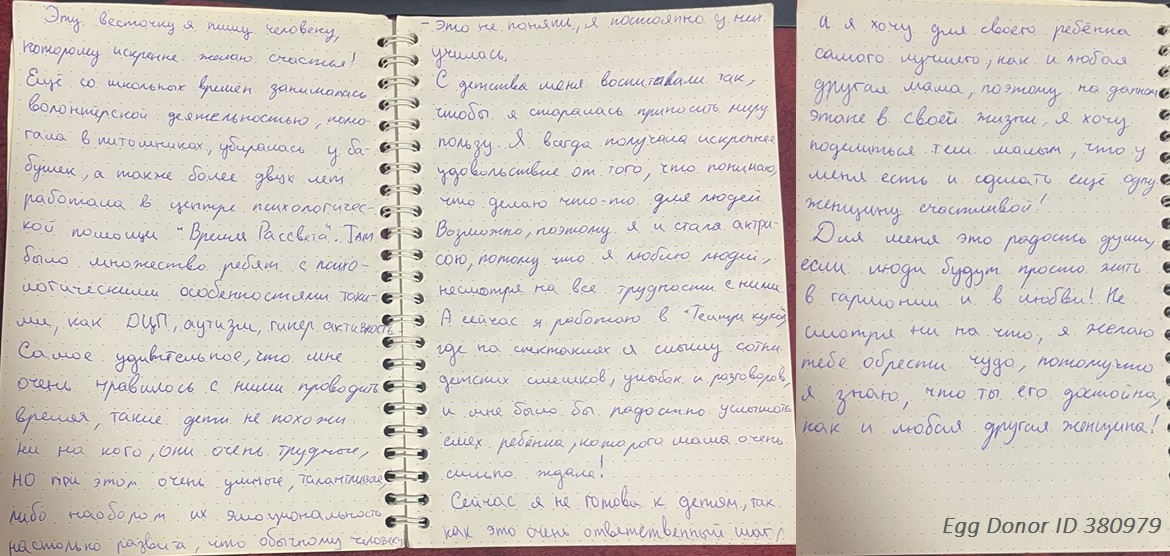 Эту весточку я пишу человеку,
которому искренне желаю счастья!
Ещё со школьных времён занималась
волонтёрской деятельностью, помо-
гала в питомниках, убиралась у ба-
бушек, а также более двух лет
работала в центре психологичес-
кой помощи "Время Рассвета". Там
было множество ребят с психо-
логическими особенностями таки-
ми, как ДЦП, аутизм, гиперактивность
Самое удивительное, что мне
очень нравилось с ними проводить
время, такие дети не похожи
ни на кого, они очень трудные,
но при этом очень умные, талантливые,
либо наоборот их эмоциональность
настолько развита, что обычному человеку
- это не понять, я постоянно у них
училась.
С детства меня воспитывали так,
чтобы я старалась приносить миру
пользу. Я всегда получала искреннее
удовольствие от того, что понимаю,
что делаю что-то для людей.
Возможно, поэтому я и стала актри-
сою, потому что я люблю людей,
несмотря на все трудности с ними.
А сейчас я работаю в "Театри кукол",
где на спектаклях я слышу сотни
детских смешков, улыбок и разговоров,
и мне было бы радостно услышать
смех ребёнка, которого мама очень
сильно ждала!
Сейчас я не готова к детям, так
как это очень ответственный шаг,
а я хочу для своего ребёнка
самого лучшего, как и любая
другая мама, поэтому на данном
этапе в своей жизни, я хочу
поделиться тем малым, что у
меня есть и сделать ещё одну
женщину счастливой!
Для меня это радость души,
если люди будут просто жить
в гармонии и в любви! Не
смотря ни на что, я желаю
тебе обрести чудо, потомучто
я знаю, что ты его достойна,
как и любая другая женщина!
Egg Donor ID 380979